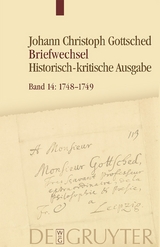 Johann Christoph Gottsched
Briefwechsel
Historisch-kritische Ausgabe
Band 14: 1748–1749
A Monsieur
Monsieur Gottsched,
Philosophie & Poesie,
à
Leipzig
DE GRUYTER